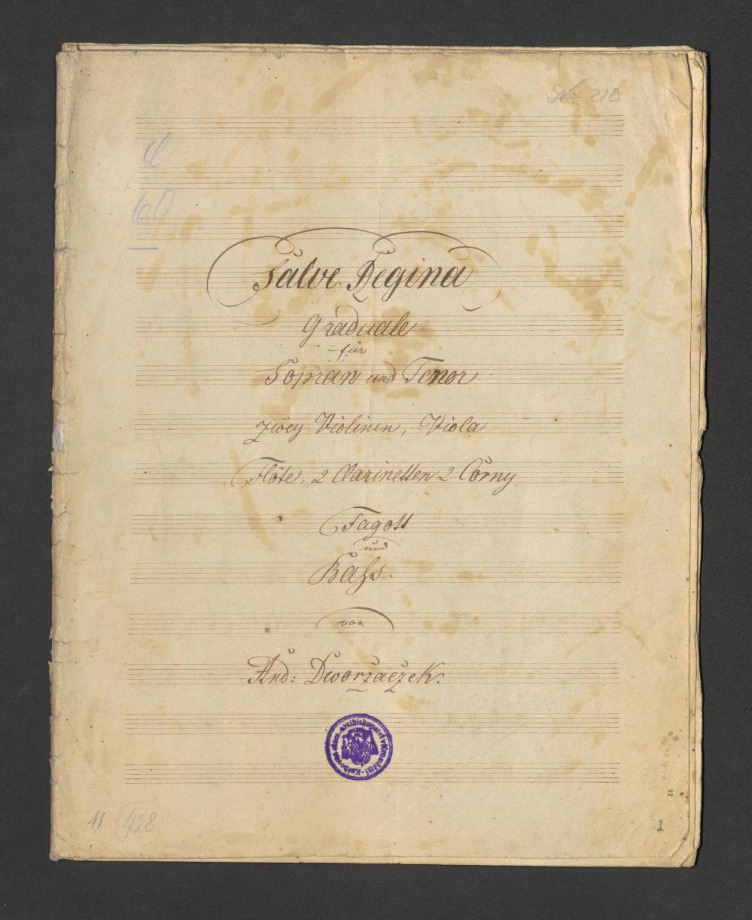 No 218
60
Salve Regina
Graduale
für
Sopran und Tenor
zwey Violinen, Viola
Flöte, 2 Clarinetten 2 Corny
Fagott
und
Bass.
von
And: Dworzaczek.
11 428
1